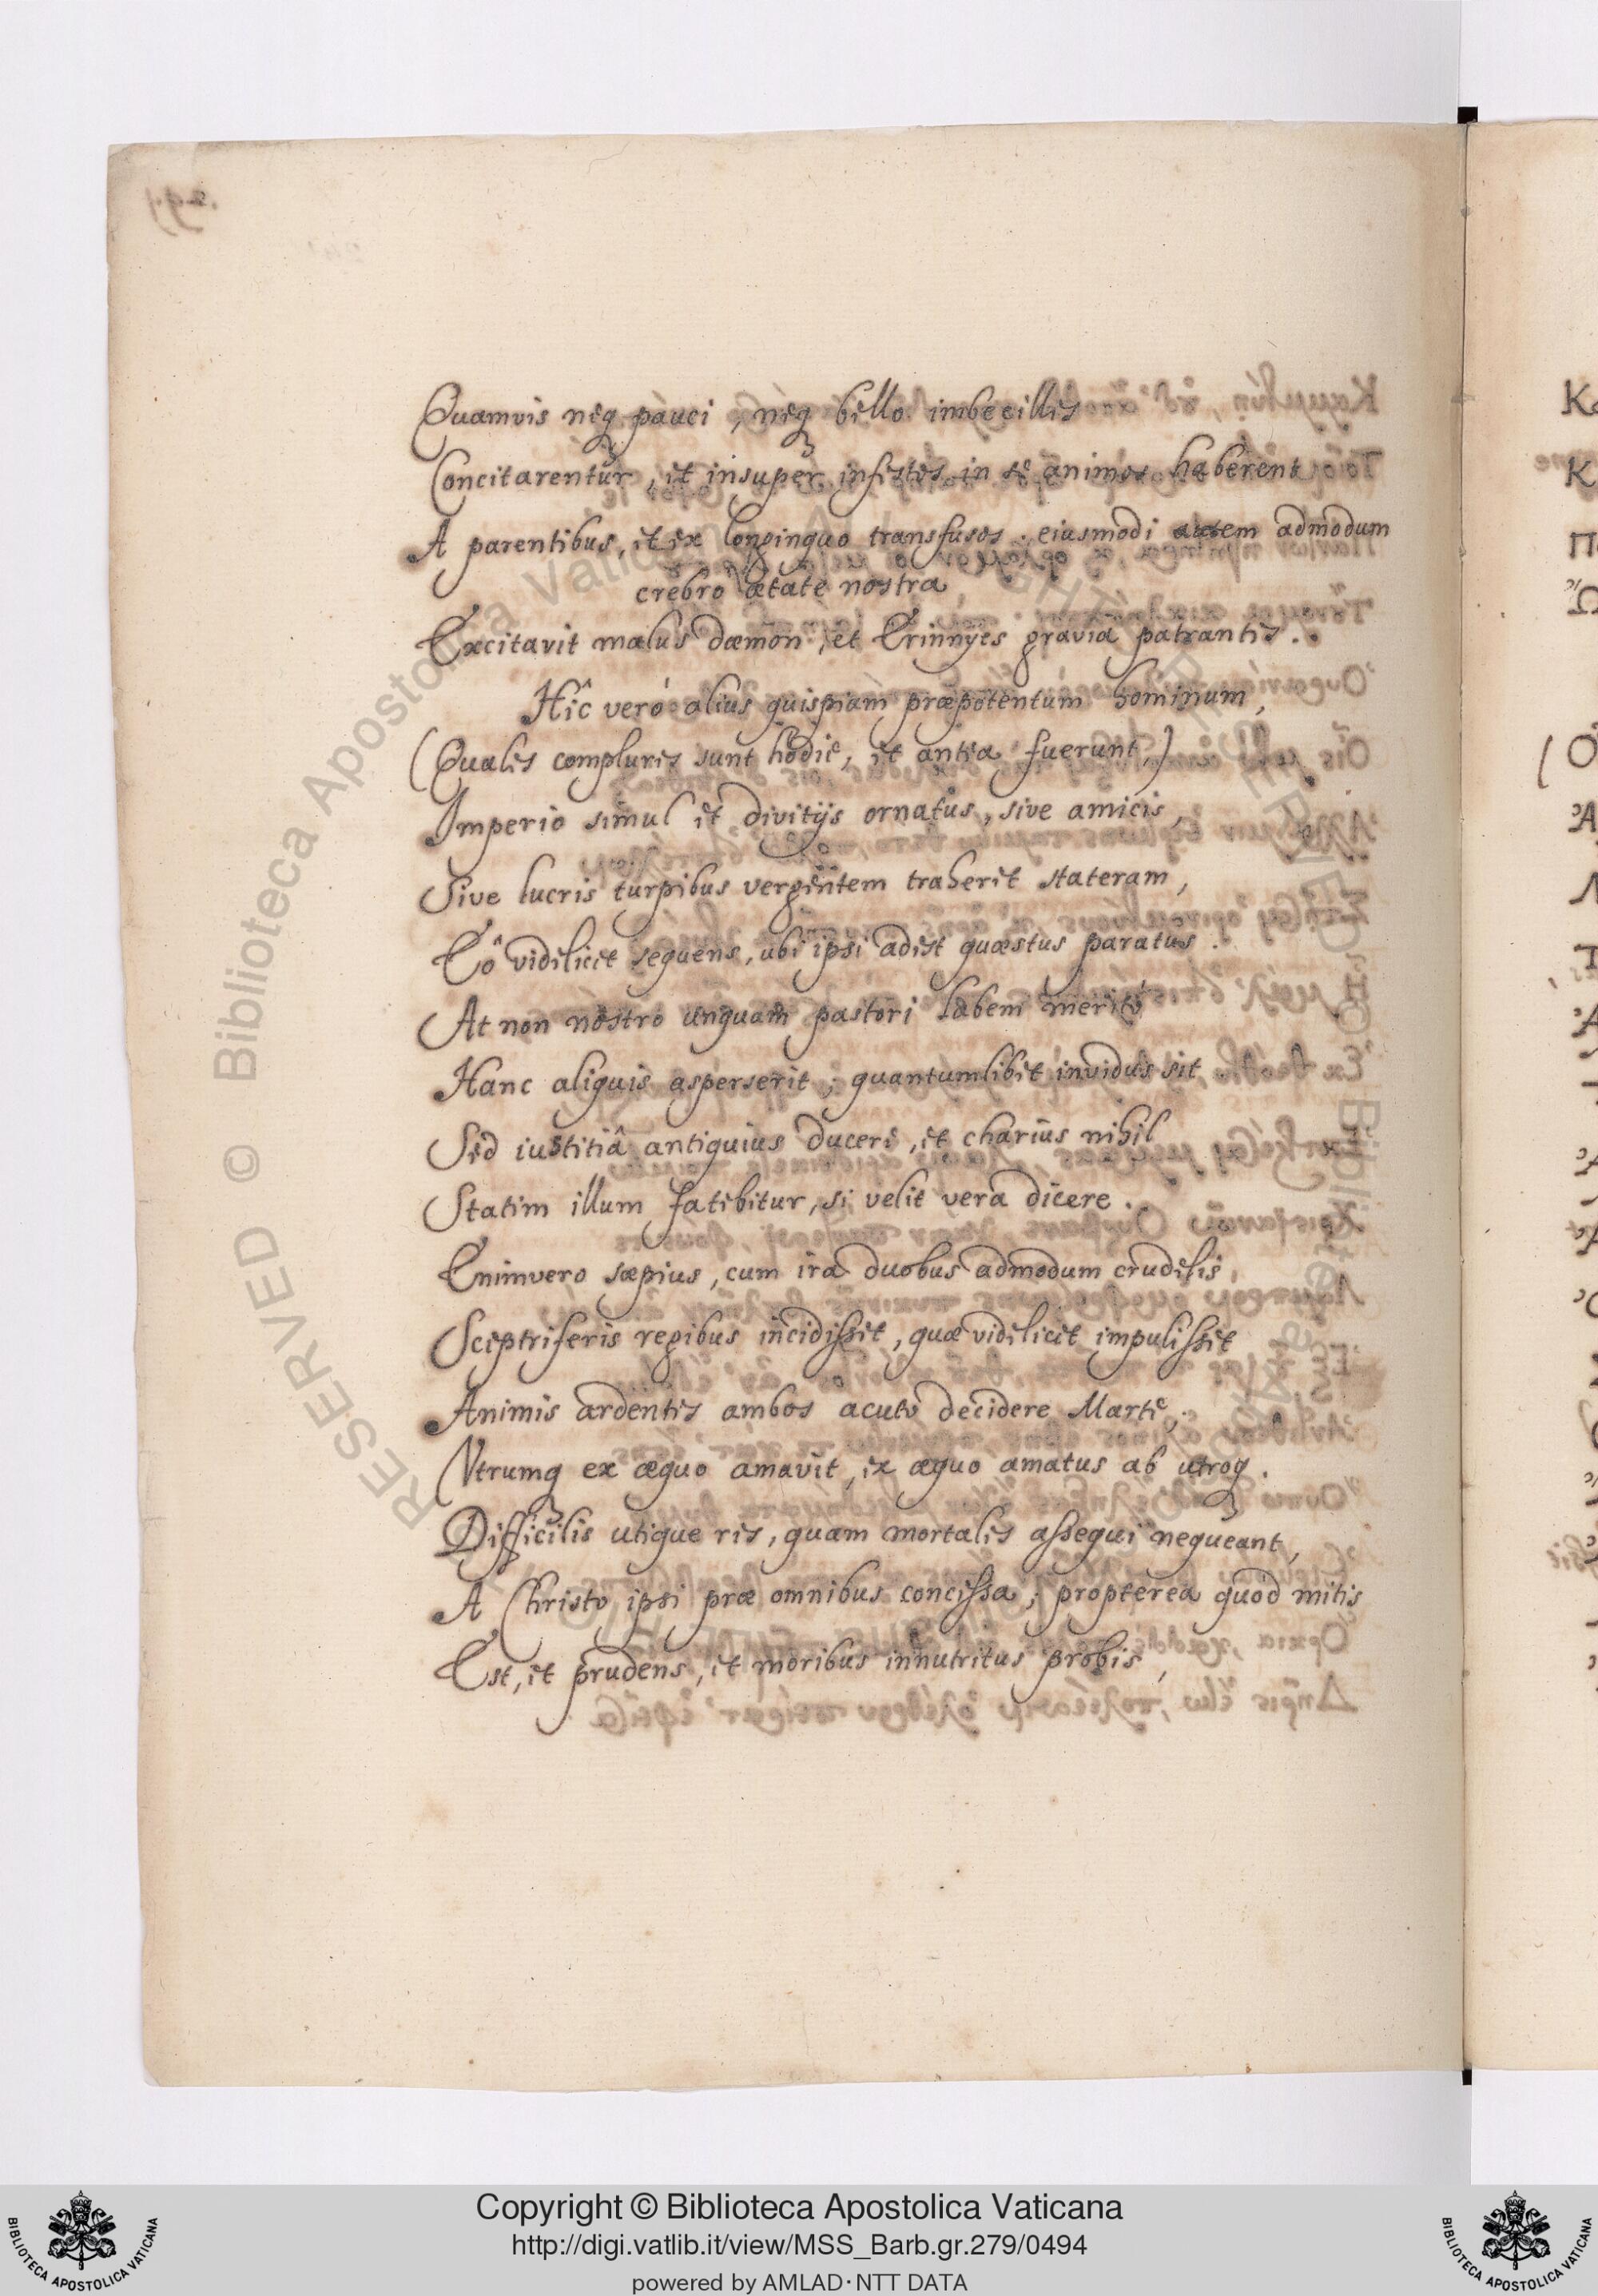 Quamvis neq₃ pauci, neq₃ bello imbecilles
Concitarentur, et insuper infestos in se animos haberent
A parentibus, et ex longinquo transfusos. eiusmodi autem admodum
crebro ætate nostra
Excitavit malus dæmon, et Erinnyes gravia patrantes.
Hîc verò alius quispiam præpotentum hominum,
(Quales complures sunt hodie, et antea fuerunt,)
Imperio simul et divitijs ornatus, sive amicis,
Sive lucris turpibus vergentem traheret stateram,
Eô videlicet sequens, ubi ipsi adest quæstus paratus.
At non nostro unquam pastori labem meritò
Hanc aliquis asperserit; quantumlibet invidus sit.
Sed iustitiâ antiquius ducere, et charius nihil
Statim illum fatebitur, si velit vera dicere.
Enimvero sæpius, cum ira duobus admodum crudelis,
Sceptriferis regibus incidisset, quæ videlicet impulisset
Animis ardentes ambos acuto decidere Marte,
Vtrumq₃ ex æquo amavit, ex æquo amatus ab utroq₃.
Difficilis utique res, quam mortales assequi nequeant,
A Christo ipsi præ omnibus concessa; propterea quod mitis
Est, et prudens, et moribus innutritus probis,
Copyright © Biblioteca Apostolica Vaticana
http://digi.vatlib.it/view/MSS_Barb.gr.279/0494
powered by AMLAD·NTT DATA
BIBLIOTECA APOSTOLICA VATICANA
BIBLIOTECA APOSTOLICA VATICANA